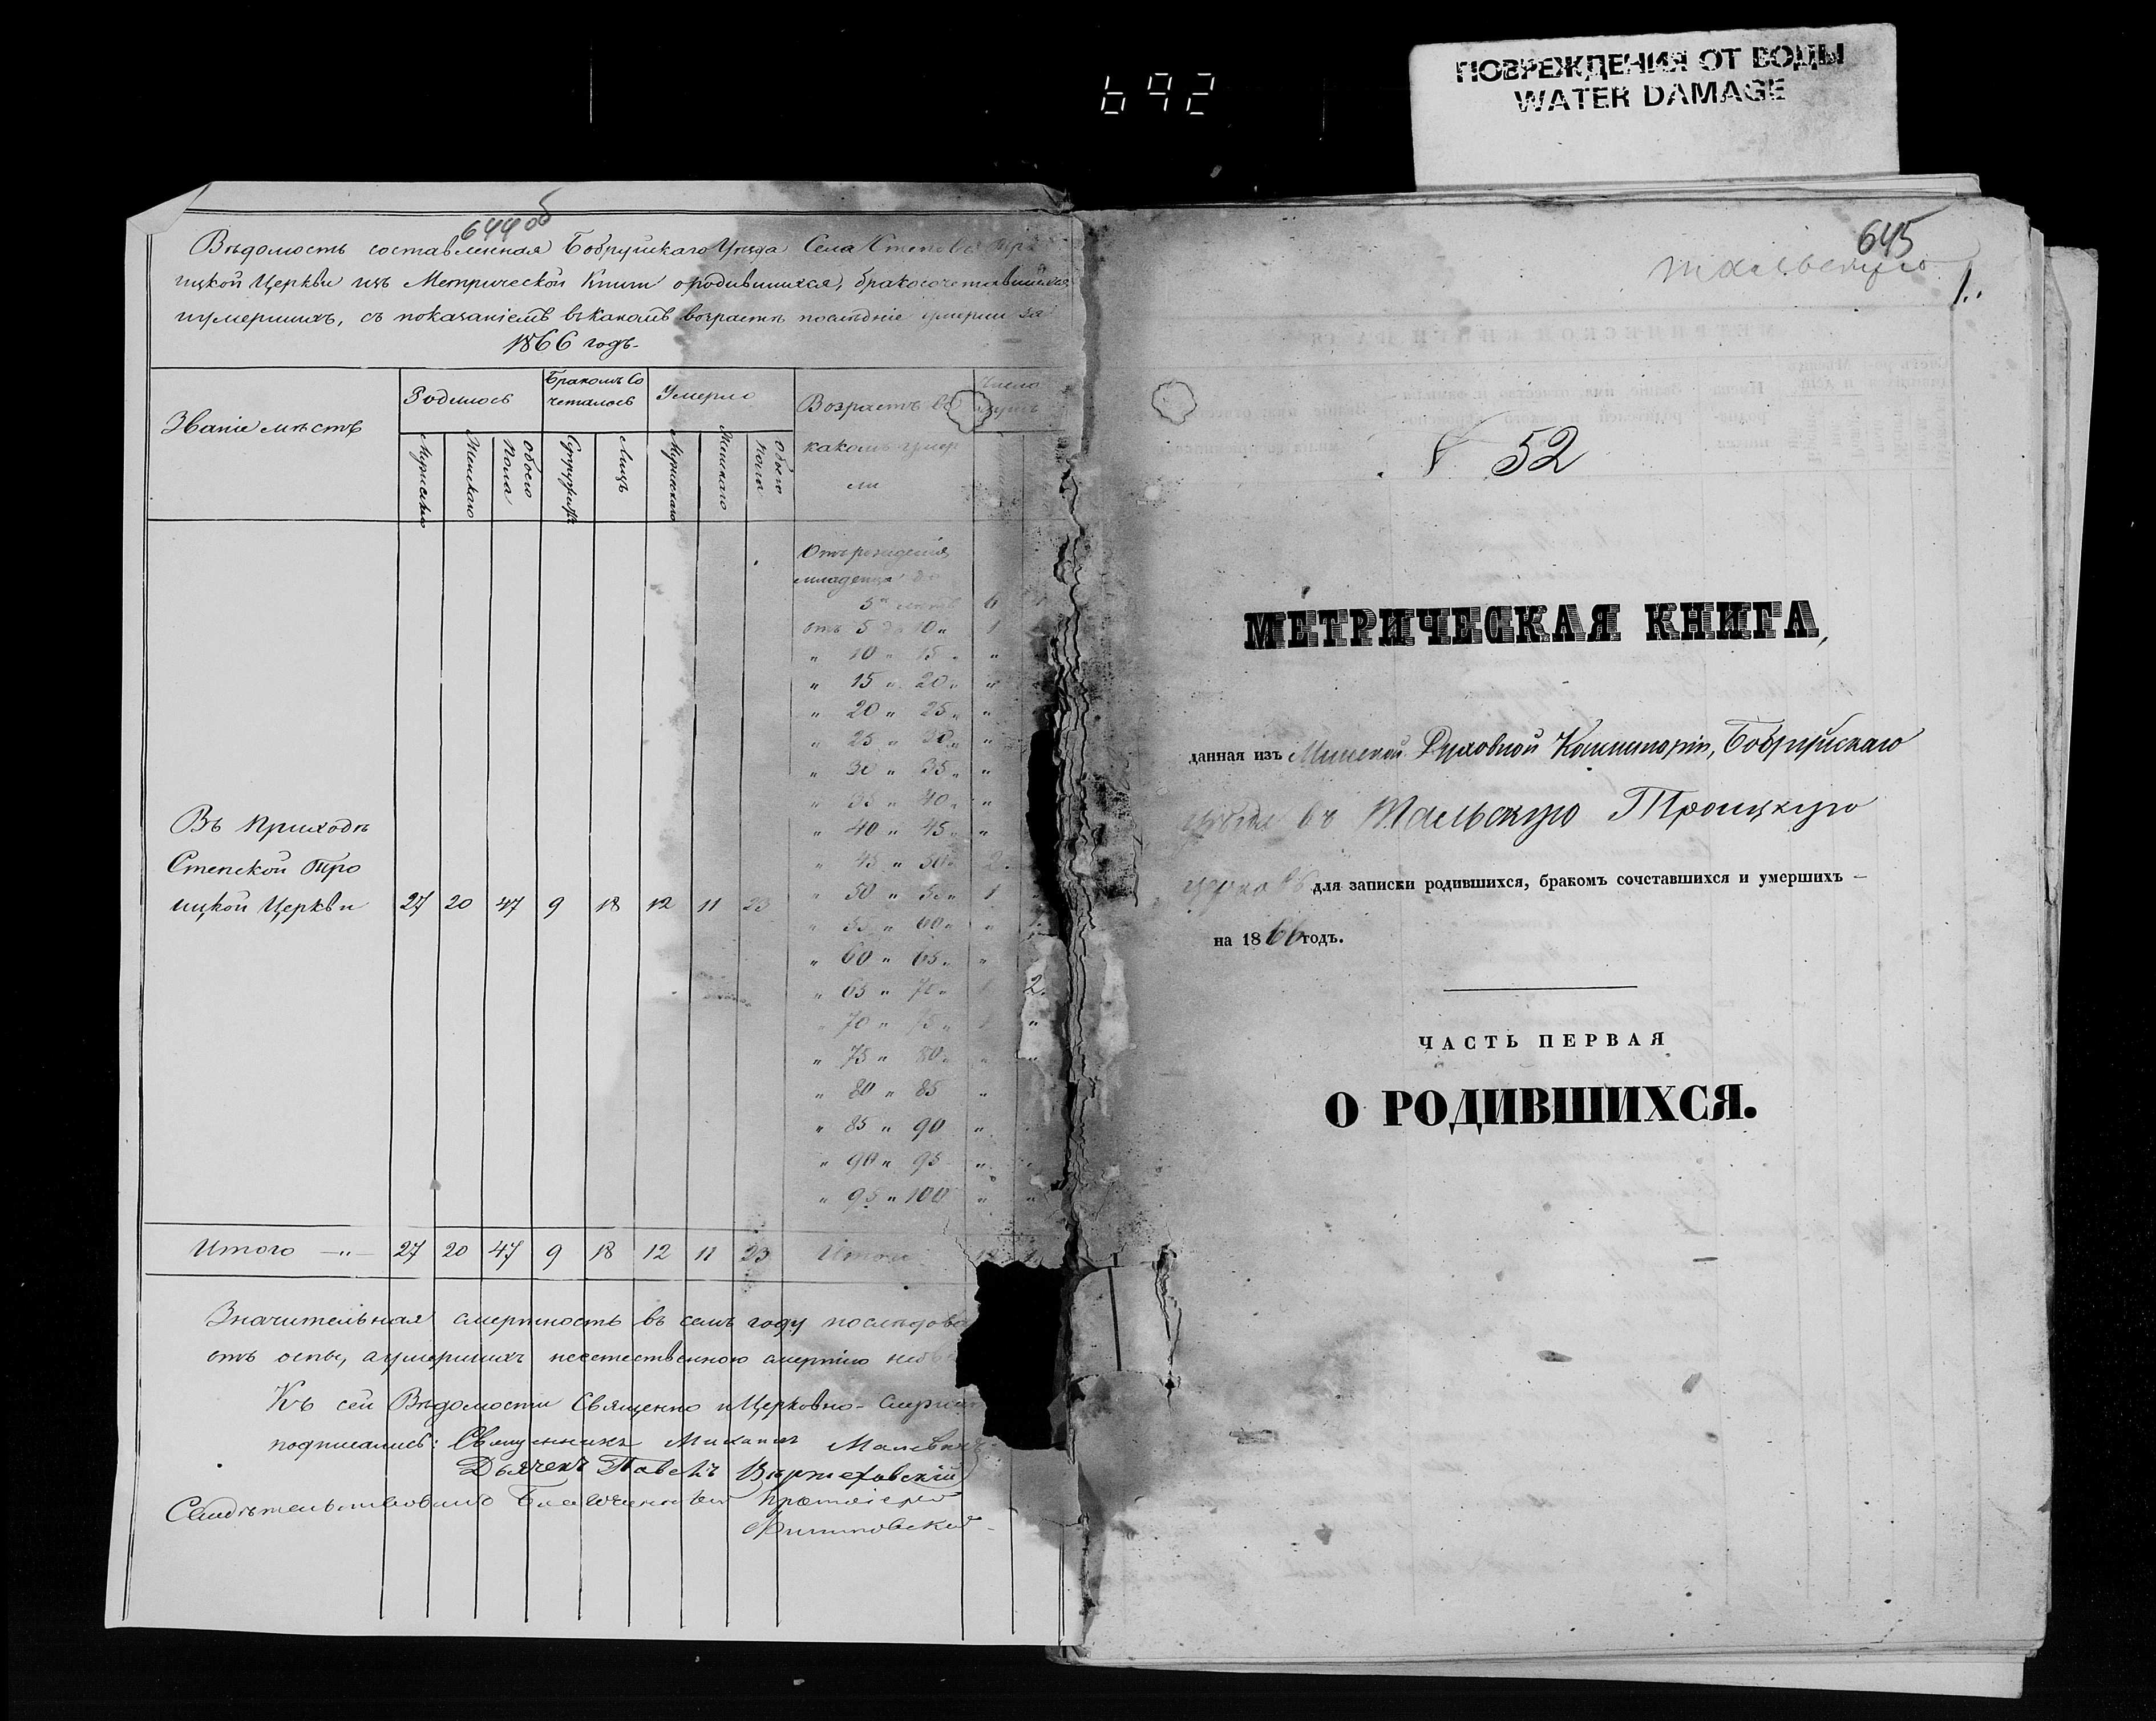 692
ПОВРЕЖДЕНИЯ ОТ ВОДЫ
WATER DAMAGE
644 об
Вѣдомость составленная Бобруйскаго Уѣзда Села Степовъ Тро
ицкой Церкви изъ Метрической Книги о родившихся, бракосочетавшихся
и умершихъ, съ показаніемъ въ какомъ возрастѣ послѣдніе умерли за
1866 годъ.
Званіе мѣстъ
Родилось
Бракомъ Со
четалось
Умерло
Возрастъ въ
какомъ умер
ли
Число
душъ
Мужскаго
Женскаго
Обоего
Пола
Супружествъ
Лицъ
Мужскаго
Женскаго
Обоего
пола
Отъ рожденія
младенца до
5 лѣтъ 6
отъ 5 до 10 „ 1
„ 10 „ 15 „ „
„ 15 „ 20 „ „
„ 20 „ 25 „ „
„ 25 „ 30 „ „
„ 30 „ 35 „ „
„ 35 „ 40 „ „
„ 40 „ 45 „ „
„ 45 „ 50 „ 2
„ 50 „ 55 „ 1
„ 55 „ 60 „ „ 1
„ 60 „ 65 „ „
„ 65 „ 70 „ 1 2
„ 70 „ 75 „ 1 „
„ 75 „ 80 „ „ „
„ 80 „ 85 „
„ 85 „ 90 „
„ 90 „ 95 „
„ 95 „ 100 „ „
Въ Приходѣ
Степской Тро
ицкой Церкви 27 20 47 9 18 12 11 23
Итого — „ — 27 20 47 9 18 12 11 23 Итого 12
Значительная смертность въ семъ году послѣдова
отъ оспы, а умершихъ неестественною смертію не
Къ сей Вѣдомости Священно и Церковно-Служи
подписались: Священникъ Михаилъ Малевичъ
Дьячекъ Павелъ Вержеховскій
Свидѣтельствовалъ Благочинный Протоіерей
645
Тальскую
1.
52
МЕТРИЧЕСКАЯ КНИГА,
данная изъ Минской Духовной Консисторіи, Бобруйскаго
уѣзда въ Тальскую Троицкую
церковь для записки родившихся, бракомъ сочетавшихся и умершихъ —
на 1866 годъ.
ЧАСТЬ ПЕРВАЯ
О РОДИВШИХСЯ.